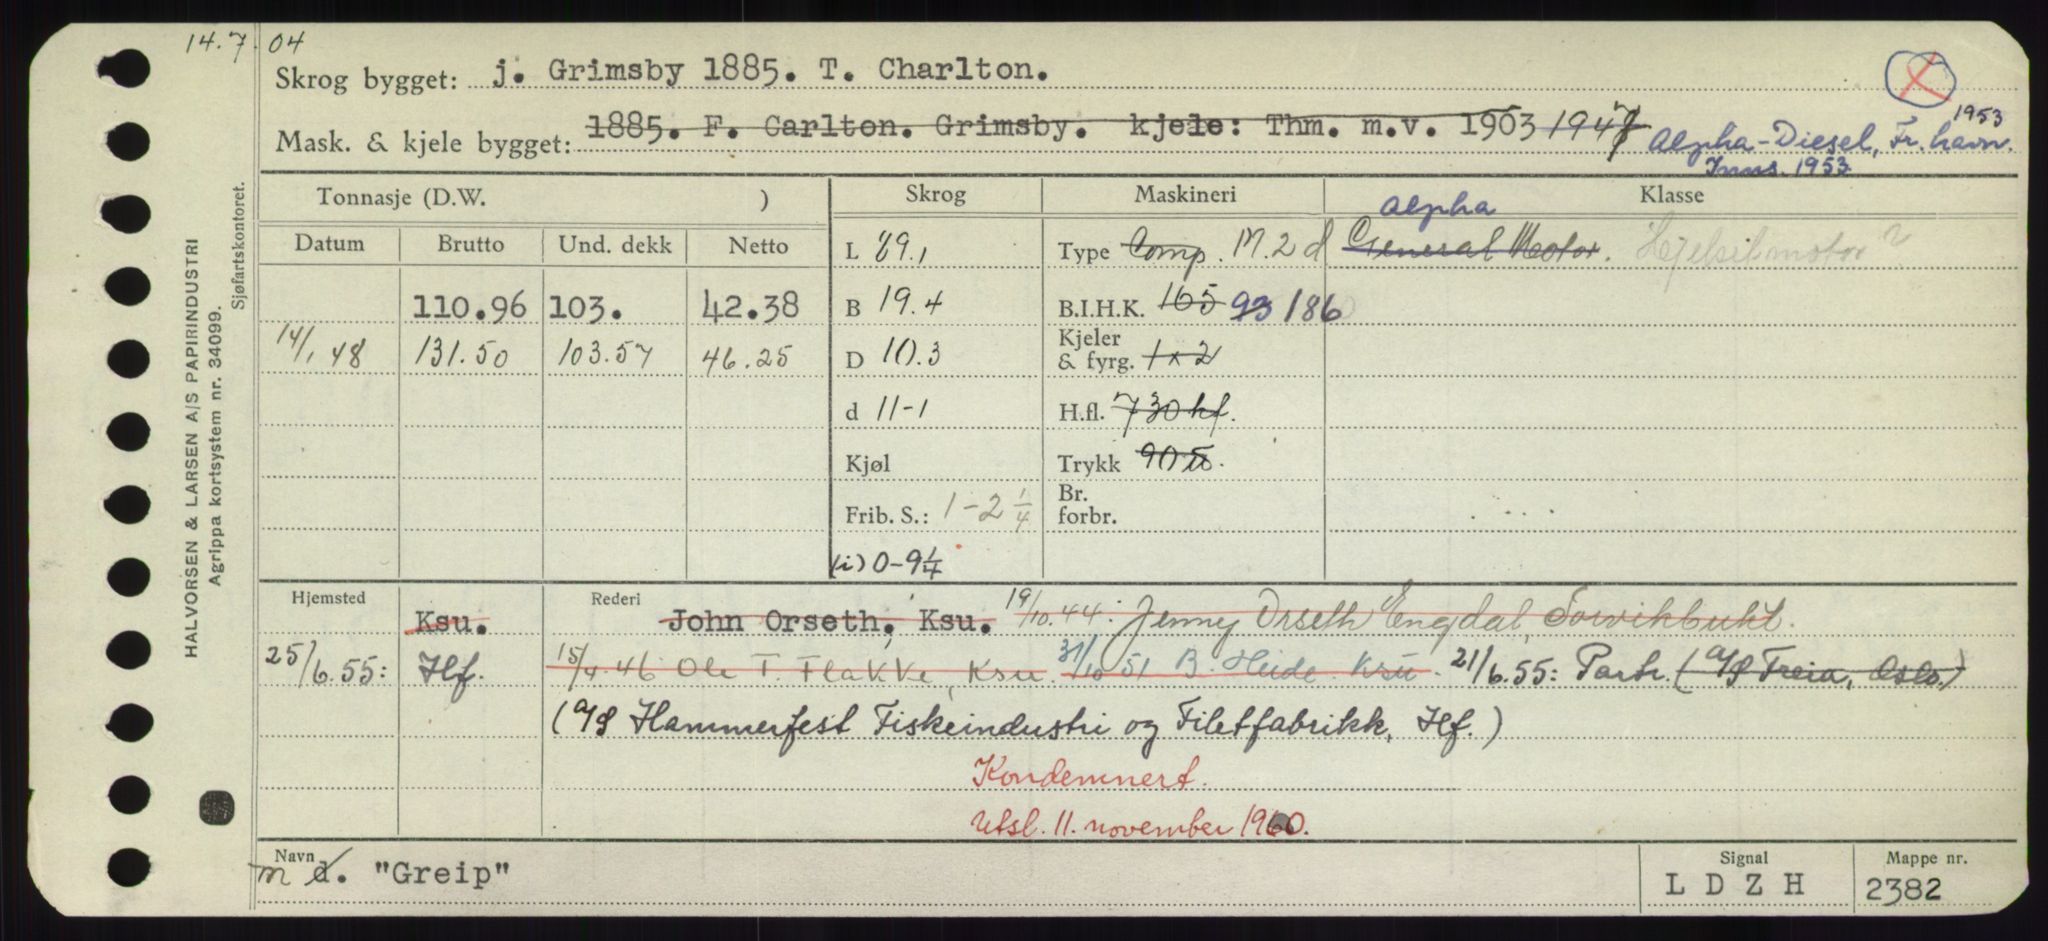 14.7.04
Skrog bygget: j. Grimsby 1885. T. Charlton.
Mask. & kjele bygget: 1885. F. Carlton. Grimsby. kjele: Thm. m.v. 1903 1947 Alpha-Diesel, Fr. havn. 1953
Inns. 1953
Tonnasje (D.W. ) Skrog Maskineri Klasse
Datum Brutto Und. dekk Netto
L 89,1 Type Comp. M. 2 d General Motor. Alpha
110.96 103. 42.38 B 19.4 B.I.H.K. 165 93 186
14/1 48 131.50 103.57 46.25 D 10.3 Kjeler & fyrg. 1x2
d 11-1 H.fl. 730 hf.
Kjøl Trykk 90
Frib. S.: 1-2 1/4 Br. forbr.
(i) 0-9 1/4
Hjemsted Ksu. Rederi John Orseth, Ksu. 19/10.44: Jenny Orseth Engdal,
25/6.55: Hf. 15/4.46 Ole T. Flakke, Ksu. 31/10 51 B. Heide Ksu. 21/6.55: Partr. (A/S Freia, Oslo.)
(A/S Hammerfest Fiskeindustri og Filetfabrikk, Hf.)
Kondemnert.
Utsl. 11. november 1960.
Navn m d. "Greip" Signal L D Z H Mappe nr. 2382
HALVORSEN & LARSEN A/S PAPIRINDUSTRI
Agrippa kortsystem nr. 34099.
Sjøfartskontoret.